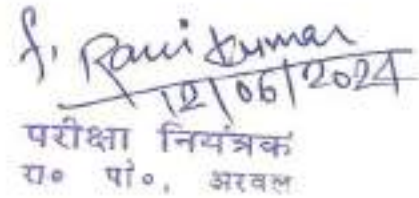 S. Ravi Kumar
12/06/2024
परीक्षा नियंत्रक
रा० पॉ०, अरवल